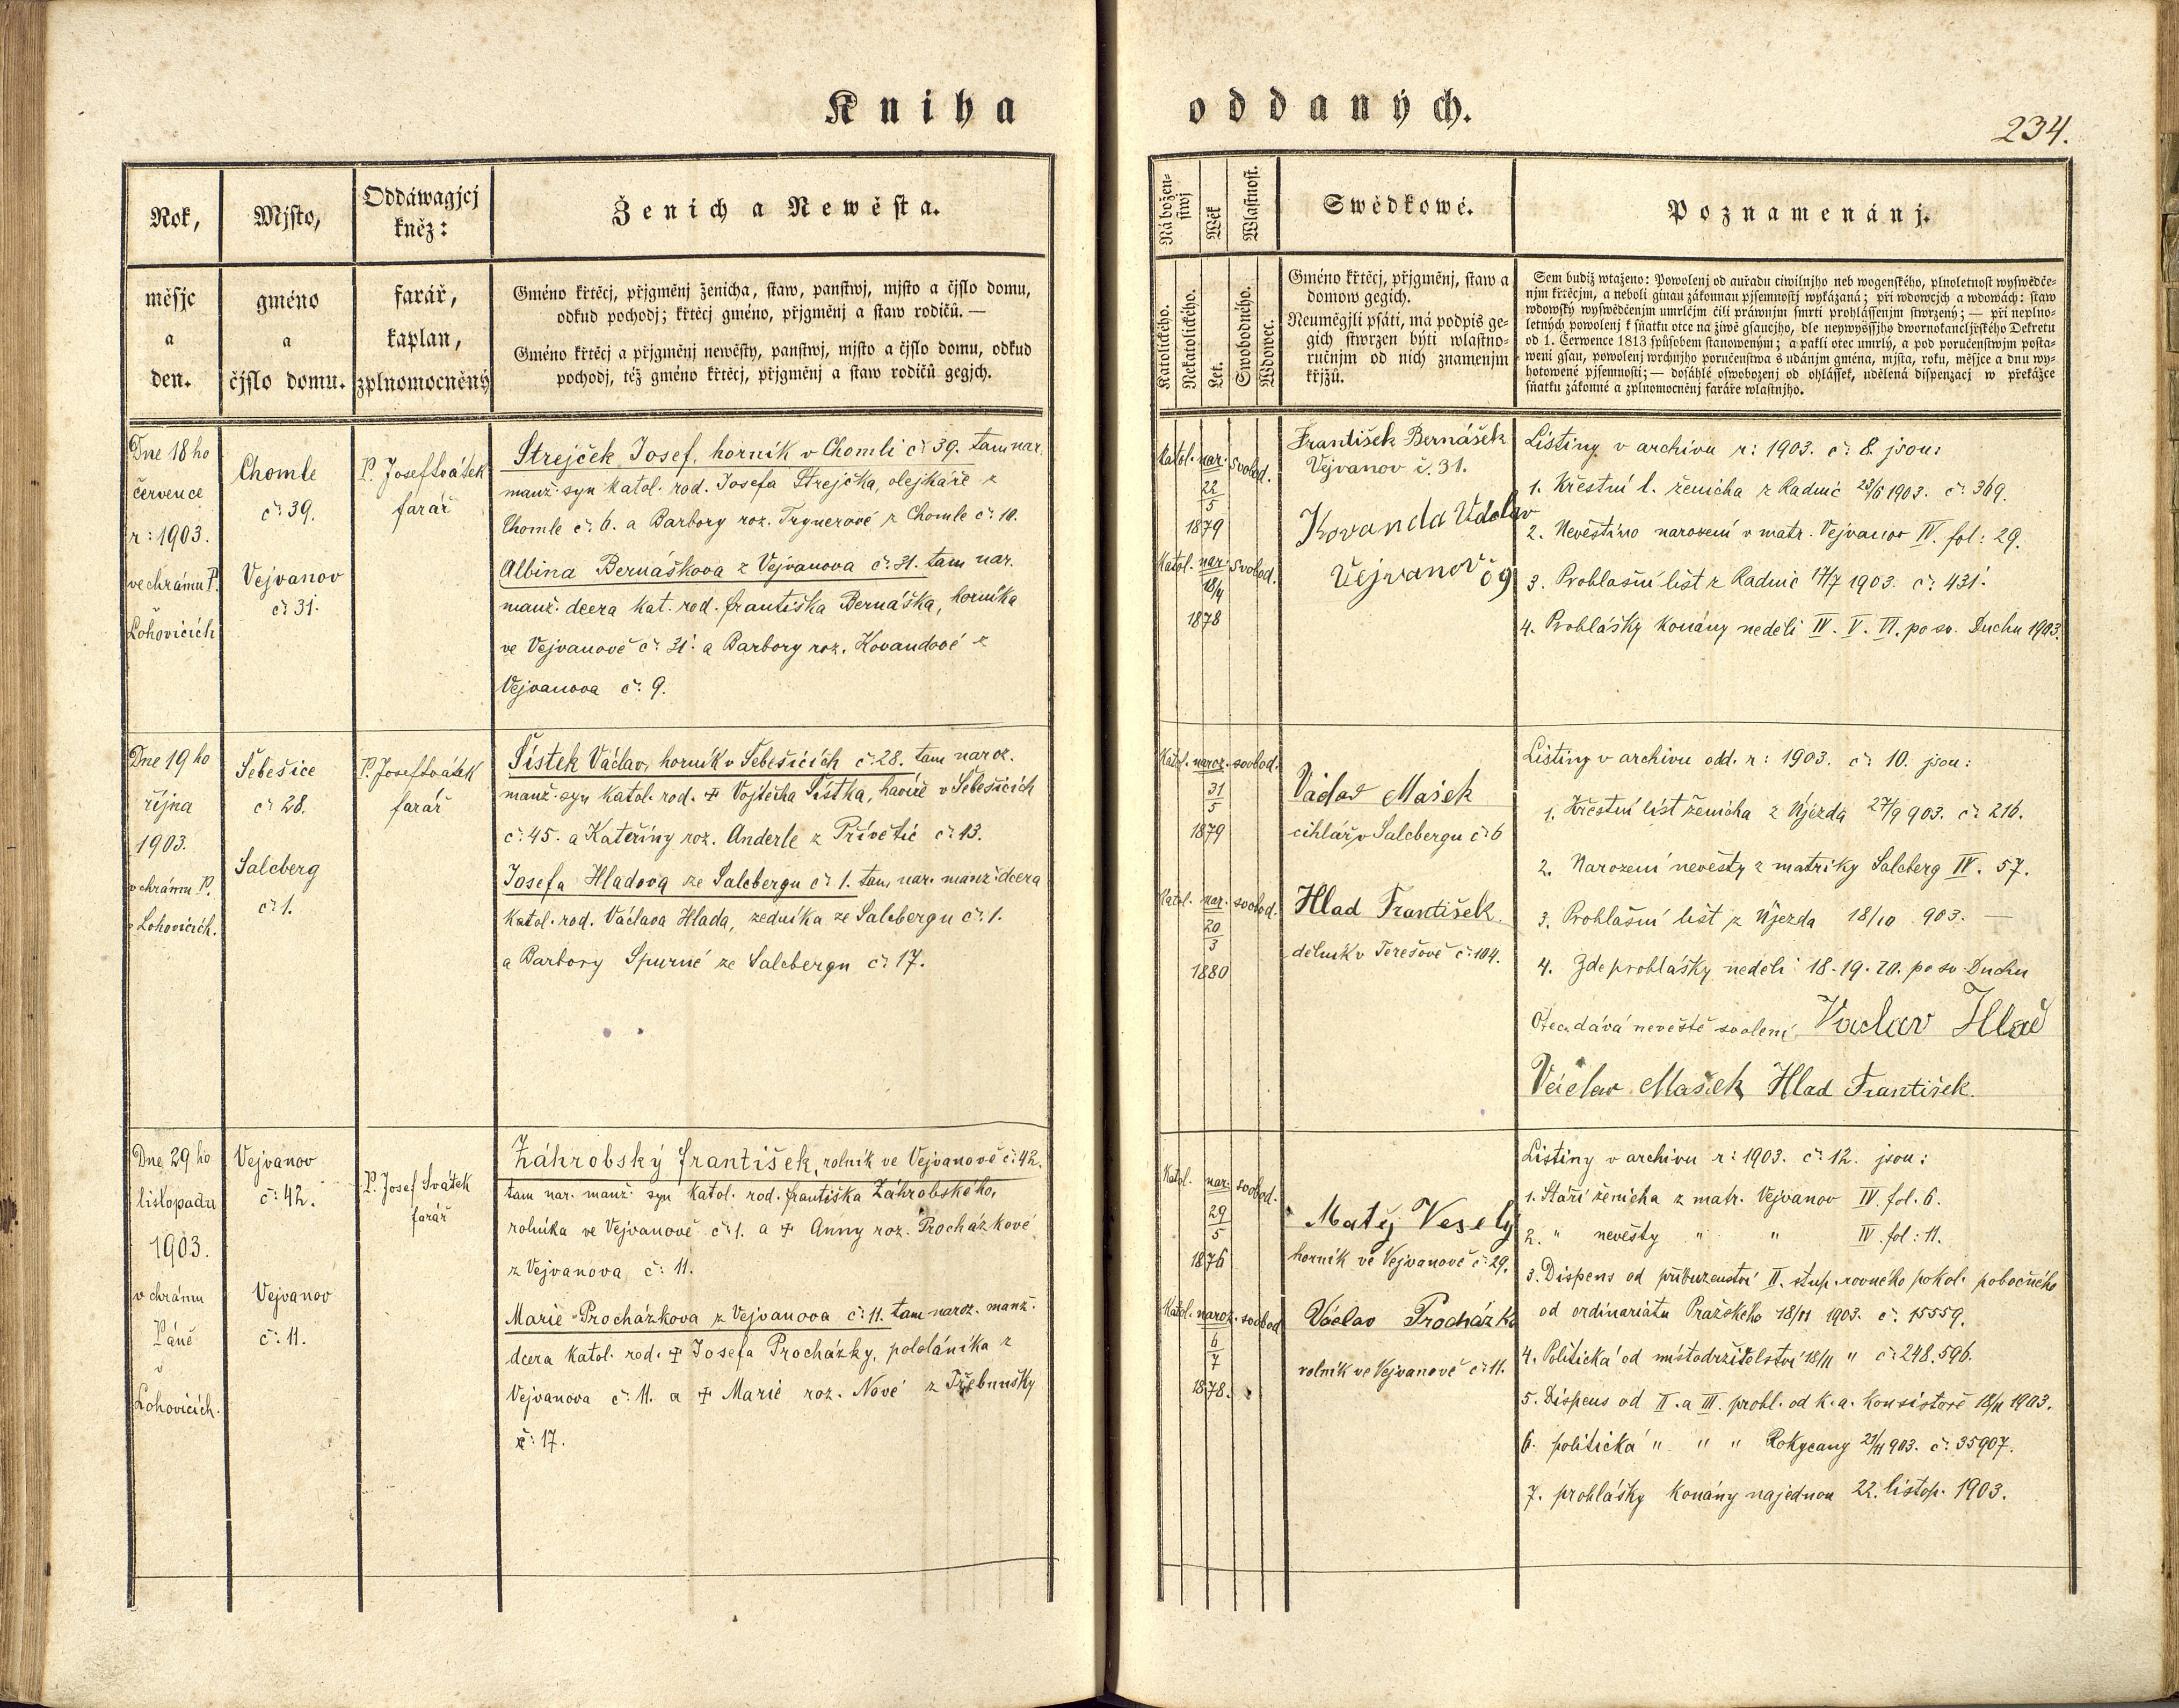 Kniha oddaných.
234.
Rok,
měsjc
a
den.
Mjsto,
gméno
a
čjslo domu.
Oddáwagjcj
kněz:
farář,
kaplan,
zplnomocněný
Ženich a Newěsta.
Gméno křtěcj, přjgměnj ženicha, staw, panstwj, mjsto a čjslo domu,
odkud pochodj; křtěcj gméno, přjgměnj a staw rodičů. —
Gméno křtěcj a přjgměnj newěsty, panstwj, mjsto a čjslo domu, odkud
pochodj, též gméno křtěcj, přjgměnj a staw rodičů gegjch.
Náboženstwj
Katolického.
Nekatolického.
Wěk
Let.
Wlastnost.
Swobodného.
Wdowec.
Swědkowé.
Gméno křtěcj, přjgměnj, staw a
domow gegich.
Neuměgjli psáti, má podpis ge-
gich stwrzen býti wlastno-
ručnjm od nich znamenjm
křjžů.
Poznamenánj.
Sem budiž wtaženo: Powolenj od auřadu ciwilnjho neb wogenského, plnoletnost wyswědče-
njm křtěcjm, a neboli ginau zákonnau pjsemnostj wykázaná; při wdowcjch a wdowách: staw
wdowský wyswědčenjm umrlčjm čili práwnjm smrti prohlássenjm stwrzený; — při neplno-
letných powolenj k sňatku otce na žiwě gsaucjho, dle neywyššjho dwornokancljřského Dekretu
od 1. Července 1813 spůsobem stanoweným; a pakli otec umrlý, a pod poručenstwjm posta-
weni gsau, powolenj wrchnjho poručenstwa s udánjm gména, mjsta, roku, měsjce a dnu wy-
hotowené pjsemnosti; — dosáhlé oswobozenj od ohlášsek, udělená dispenzacj w překážce
sňatku zákonné a zplnomocněnj faráře wlastnjho.
Dne 18 ho
července
r: 1903.
ve chrámu P.
Lohovicích
Chomle
č: 39.
Vejvanov
č: 31.
P. Josef Svátek
farář
Strejček Josef, horník v Chomli č: 39. tam nar.
manž. syn katol. rod. Josefa Strejčka, olejkáře z
Chomle č: 6. a Barbory roz. Trynerové z Chomle č: 10.
Albina Bernášková z Vejvanova č: 31. tam nar.
manž. dcera kat. rod. Františka Bernáška, horníka
ve Vejvanově č: 31. a Barbory roz. Kovandové z
Vejvanova č: 9.
Katol. nar. svobod.
22
5
1879
Katol. nar. svobod.
18/4
1878
František Bernášek
Vejvanov č. 31.
Kovanda Václav
Vejvanov č 9
Listiny v archivu r: 1903. č: 8. jsou:
1. Křestní l. ženicha z Radnic 23/6 1903. č: 369.
2. Nevěstino narození v matr. Vejvanov IV. fol: 29.
3. Prohlašní list z Radnic 17/7 1903. č: 431.
4. Prohlášky konány neděli IV. V. VI. po sv. Duchu 1903.
Dne 19 ho
října
1903.
v chrámu P.
v Lohovicích.
Sebešice
č: 28.
Salcberg
č: 1.
P. Josef Svátek
farář
Šístek Václav, horník v Sebešicích č: 28. tam naroz.
manž. syn katol. rod. ✝ Vojtěcha Šístka, havíře v Sebešicích
č: 45. a Kateřiny roz. Anderle z Přívětic č: 13.
Josefa Hladova ze Salcbergu č: 1. tam nar. manž. dcera
katol. rod. Václava Hlada, zedníka ze Salcbergu č: 1.
a Barbory Spurné ze Salcbergu č: 17.
Katol. naroz. svobod.
31
5
1879
Katol. nar. svobod.
20
3
1880
Václav Mašek
cihlář v Salcbergu č: 6
Hlad František
dělník v Terešově č: 104.
Listiny v archivu odd. r: 1903. č: 10. jsou:
1. Křestní list ženicha z Újezda 27/9 903. č: 216.
2. Narození nevěsty z matriky Salcberg IV. 57.
3. Prohlašní list z Újezda 18/10 903. —
4. Zde prohlášky neděli 18. 19. 20. po sv. Duchu
Otec dává nevěstě svolení Vaclav Hlad
Václav Mašek Hlad František.
Dne 29 ho
listopadu
1903.
v chrámu
Páně
v
Lohovicích.
Vejvanov
č: 42.
Vejvanov
č: 11.
P. Josef Svátek
farář
Záhrobský František, rolník ve Vejvanově č: 42.
tam nar. manž. syn katol. rod. Františka Záhrobského,
rolníka ve Vejvanově č: 1. a ✝ Anny roz. Procházkové
z Vejvanova č: 11.
Marie Procházkova z Vejvanova č: 11. tam naroz. manž.
dcera katol. rod. ✝ Josefa Procházky, pololáníka z
Vejvanova č: 11. a ✝ Marie roz. Nové z Třebnušky
č: 17.
Katol. nar. svobod.
29
5
1876
Katol. naroz. svobod
6
7
1878.
Matěj Veselý
horník ve Vejvanově č: 29.
Václav Procházka
rolník ve Vejvanově č: 11.
Listiny v archivu r: 1903. č: 12. jsou:
1. Stáří ženicha z matr. Vejvanov IV. fol. 6.
2. " nevěsty " " IV. fol: 11.
3. Dispens od příbuzenství II. stup. rovného pokol. pobočného
od ordinariátu Pražského 18/11 1903. č. 15559.
4. Politická od místodržitelství 18/11 " č: 248.596.
5. Dispens od II. a III. prohl. od k. a. konsistoře 18/11 1903.
6. politická " " " Rokycany 21/11 903. č: 35907.
7. prohlášky konány najednou 22. listop. 1903.